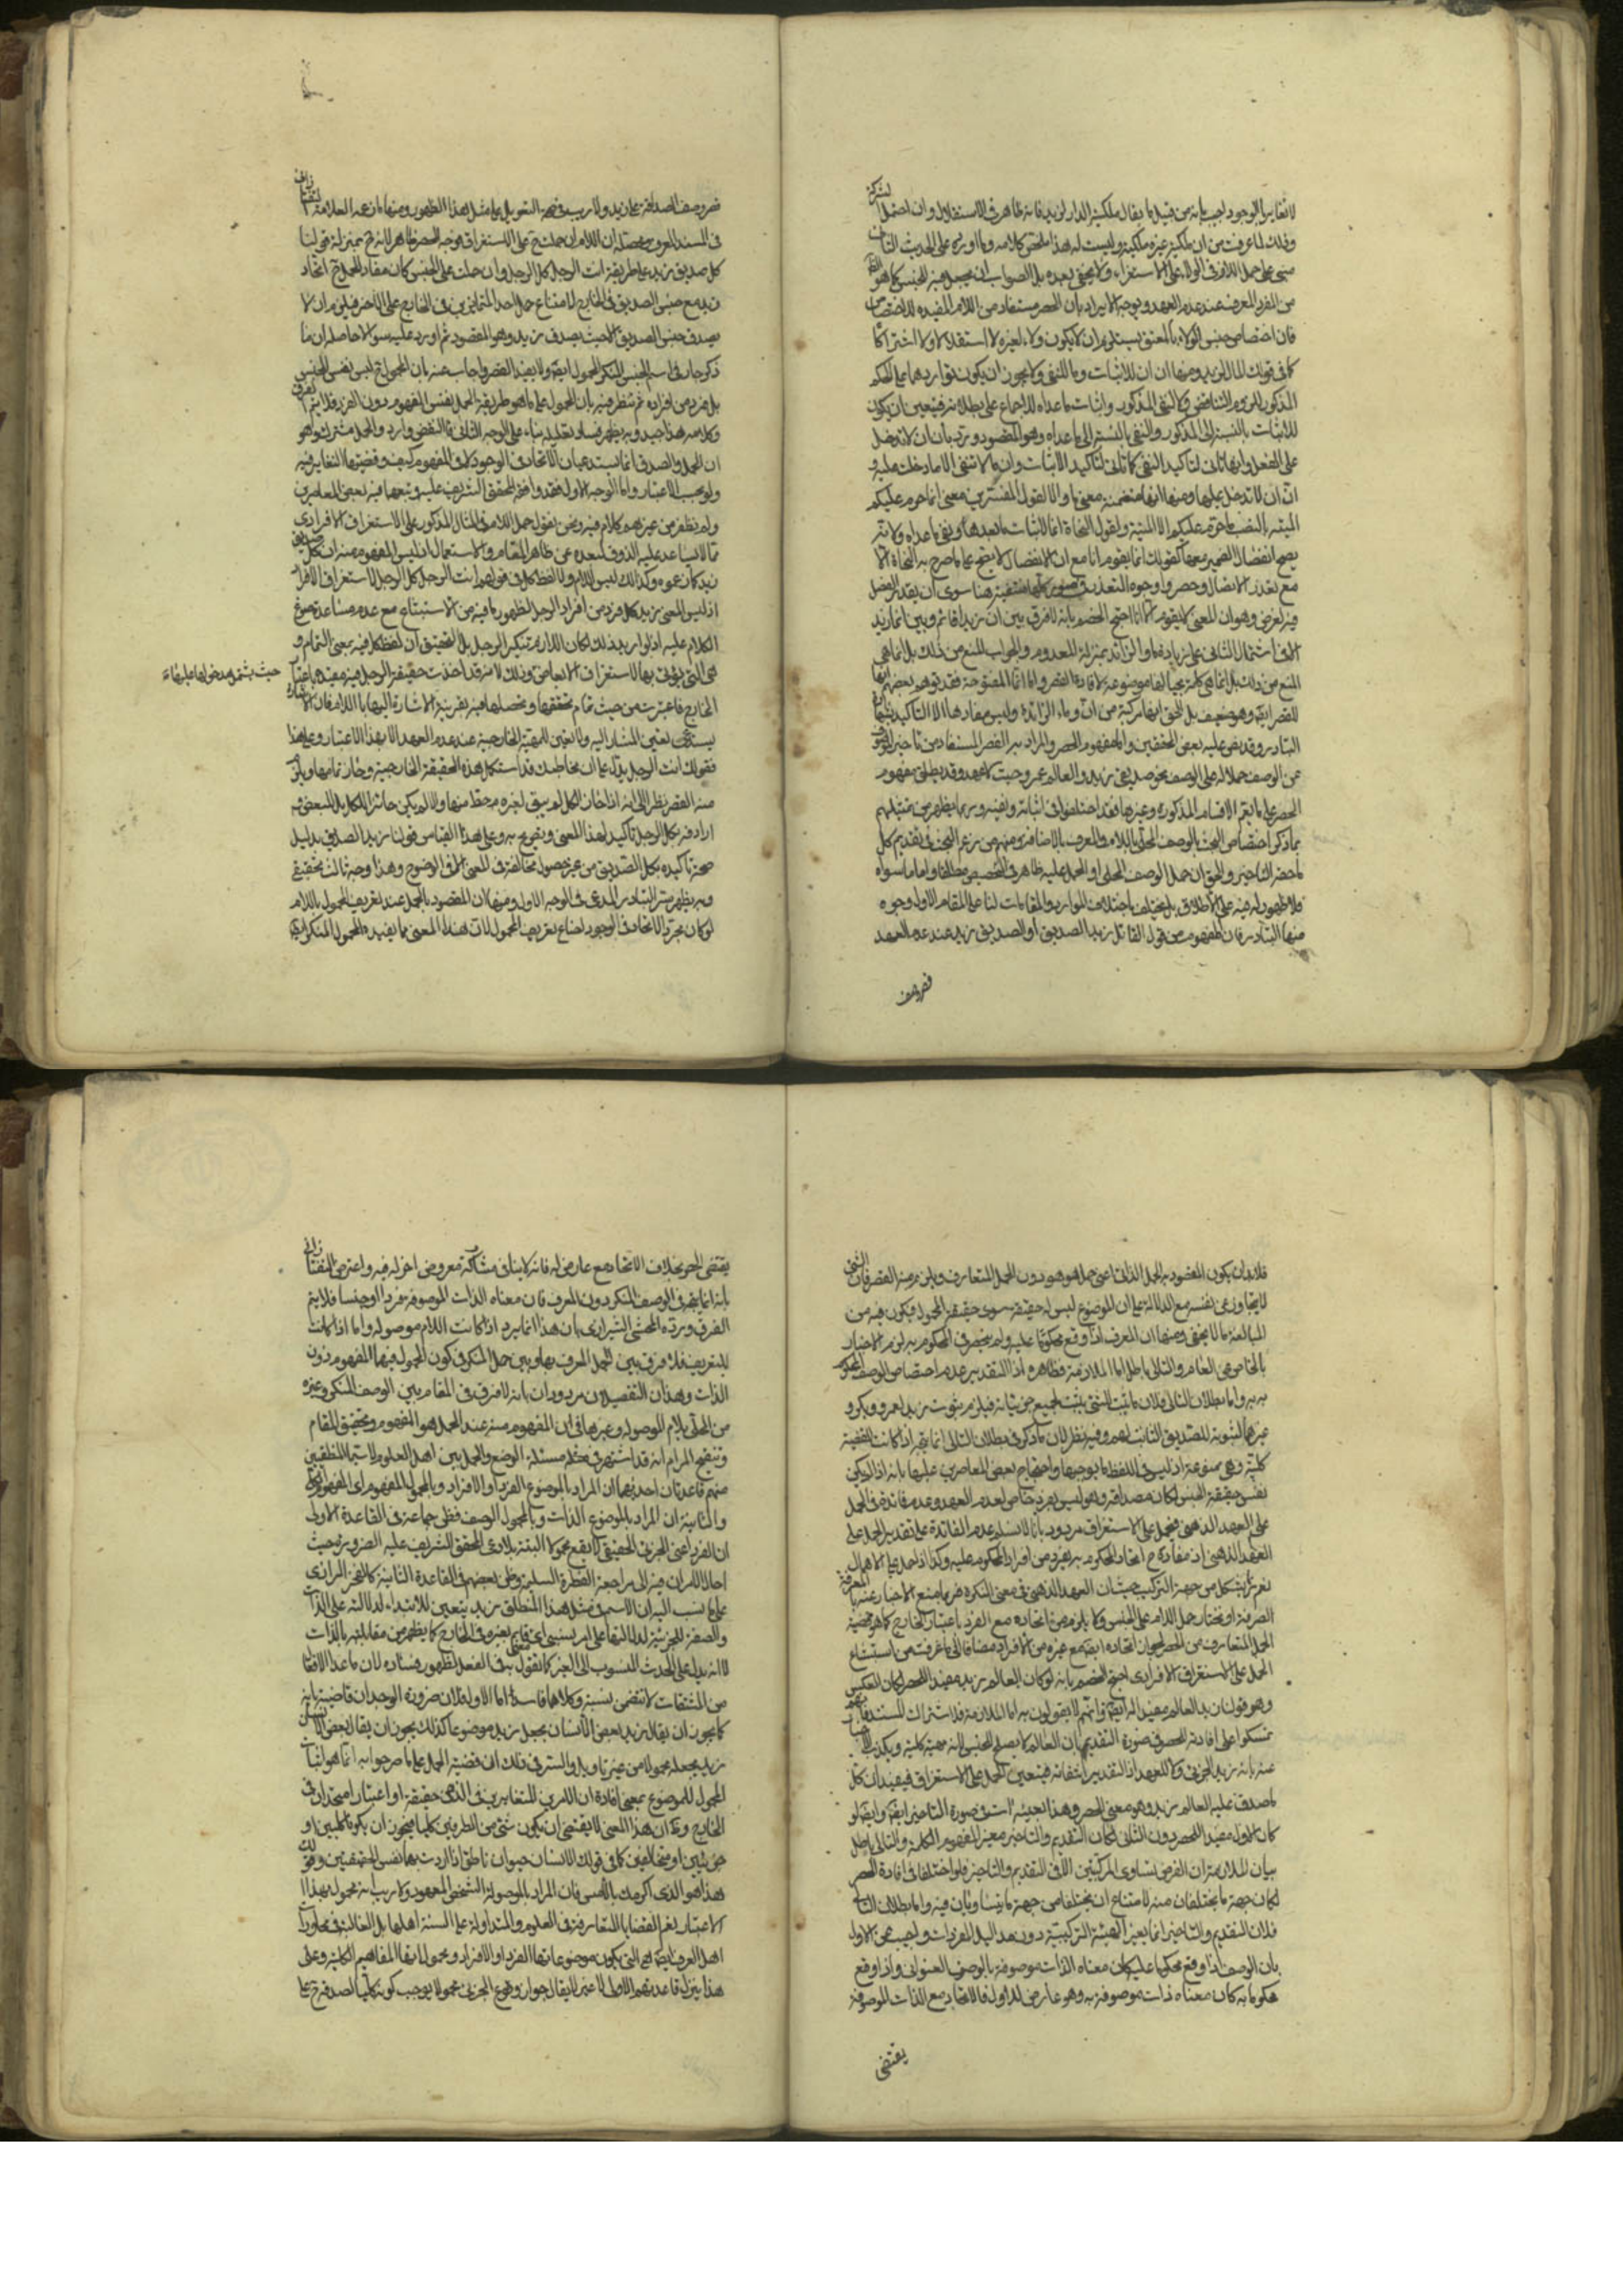 لا تغاير الوجود اجيب بانه من قبيل ما يقال ملكية الدار لزيد فانه ظاهر في الاستقلال وان احتمل الشركة
وذلك لما عرفت من ان ملكية غيره ملكية وليست له هذا ملخص كلامه وما اورده على الحديث الثاني
مبني على حمل اللام في الولاء على الاستغراق ولا يخفى بعده بل الصواب ان يجعل فيه للجنس كما هو الظاهر
من المفرد المعرف عند عدم العهد ويوجه الايراد بان الحصر مستفاد من اللام المفيدة للاختصاص
فان اختصاص جنس الولاء بالمعتق يستلزم ان لا يكون ولاء لغيره لا استقلالا ولا اشتراكا
كما في قولك المال لزيد ومنها ان ان للاثبات وما للنفي ولا يجوز ان يكون تواردهما على الحكم
المذكور للزوم التناقض ولا لنفي المذكور واثبات ما عداه للاجماع على بطلانه فتعين ان يكون
للاثبات بالنسبة الى المذكور والنفي بالنسبة الى ما عداه وهو المقصود ويرد بان ان لا تدخل
على الفعل وانها تاتي لتاكيد النفي كما تاتي لتاكيد الاثبات وان ما لا تنفي الا ما دخلت عليه و
ان ان لا تدخل عليها ومنها انها متضمنة معنى ما والا لقول المفسرين معنى انما حرم عليكم
الميتة بالنصب ما حرم عليكم الا الميتة ولقول النحاة انما لاثبات ما بعدها ونفي ما عداه ولانه
يصح انفصال الضمير معها كقولك انما يقوم انا مع ان الانفصال لا يصح على ما صرح به النحاة الا
مع تعذر الاتصال وحصروا وجوه التعذر في صور كلها منتفية هنا سوى ان يقدر الفصل
فيه لغرض وهو ان المعنى لا يقوم الا انا احتج الخصم بانه لا فرق بين ان زيدا قائم وبين انما زيد
المنع من ذلك بل انما هي كلمة بحيالها موضوعة لافادة القصر واما انما المفتوحة فقد توهم بعضهم انها
للقصر ايضا وهو ضعيف بل الحق انها مركبة من ان وما الزائدة وليس مفادها الا التاكيد
التبادر وقد نص عليه بعض المحققين واما مفهوم الحصر والمراد به القصر المستفاد من تاخير الموصوف
عن الوصف حملا له على الوصف نحو صديقي زيد والعالم عمرو حيث لا عهد وقد يطلق مفهوم
الحصر على ما يعم الاقسام المذكورة وغيرها فقد اختلفوا في اثباته ونفيه وربما يظهر من تمثيلهم
بما ذكر اختصاص البحث بالوصف المحلى باللام والمعرف بالاضافة ومنهم من زعم البحث في تقديم كل
ما حقه التاخير والحق ان حمل الوصف المحلى او الحمل عليه ظاهر في التخصيص مطلقا واما ما سواه
فلا ظهور له فيه على الاطلاق بل يختلف باختلاف الموارد والمقامات لنا على المقام الاول وجوه
منها التبادر فان المفهوم من قول القائل زيد الصديق او الصديق زيد عند عدم العهد
قصر وصف
قصر وصف الصداقة على زيد ولا ريب في صحة التعويل على مثل هذا الظهور ومنها ما ذكره العلامة التفتازاني
في المسند المعرف ومحصله ان اللام ان حملت على الاستغراق فوجه الحصر ظاهر لانه ح بمنزلة قولنا
كل صديق زيد على طريقة انت الرجل كل الرجل وان حملت على الجنس كان مفاد الحمل ح اتحاد
زيد مع جنس الصديق في الخارج لامتناع حمل احد المتمايزين في الخارج على الاخر فيلزم ان لا
يصدق جنس الصديق الا حيث يصدق زيد وهو المقصود ثم اورد عليه سؤالا حاصله ان ما
ذكر جار في اسم الجنس المنكر المحمول ايضا ولا يفيد القصر واجاب عنه بان المحمول ح ليس نفس الجنس
بل فرد من افراده ثم نظر فيه بان المحمول على ما هو طريقة الحمل نفس المفهوم دون الفرد فلا يتم الفرق
وكلامه هذا جيد وبه يظهر فساد تعليله بناء على الوجه الثاني فالنقض وارد والحل مشترك وهو
ان الحمل والصدق انما يستدعيان الاتحاد في الوجود لا في المفهوم كيف وقضيتها التغاير فيه
ولو بحسب الاعتبار واما الوجه الاول فقد وافقه المحقق الشريف عليه وتبعهما فيه بعض المعاصرين
ولم نظفر من غيرهم بكلام فيه ونحن نقول حمل اللام في المثال المذكور على الاستغراق الافرادي
مما لا يساعد عليه الذوق لبعده عن ظاهر المقام والاستعمال اذ ليس المفهوم منه ان كل صديق
زيد كان عمرو وكذلك ليس اللام ولا لفظ كل في قولهم انت الرجل كل الرجل لاستغراق الافراد
اذ ليس المعنى زيد كل فرد من افراد الرجل لظهور ما فيه من الاستبشاع مع عدم مساعدة صوغ
الكلام عليه اذ لو اريد ذلك لكان اللازم تنكير الرجل بل التحقيق ان لفظ كل فيه بمعنى التمام و
هي التي يؤتى بها لاستغراق الابعاض وذلك لانه قد اخذت حقيقة الرجل فيه مقيدة باعتبار
حيث يشتمل مدخولها عليها
الخارج فاعتبرت من حيث تمام تحققها وتحصلها فيه بقرينة الاشارة اليها باللام فان الاشارة
يستدعي تعيين المشار اليه ولا تعيين للمهية الخارجية عند عدم العهد الا بهذا الاعتبار وعلى هذا
فقولك انت الرجل يدل على ان مخاطبك قد استكمل هذه الحقيقة الخارجية وحاز تمامها ويلزم
منه القصر نظرا الى انه اذا حاز الكل لم يبق لغيره حظ منها والا لم يكن حائزا للكل بل للبعض وفي
ارادفه بكل الرجل تاكيد لهذا المعنى وتصريح به وعلى هذا القياس قولنا زيد الصديق بدليل
صحة تاكيده بكل الصديق من غير حصول مخالفة في المعنى الا في الوضوح وهذا وجه ثالث تحقيقي
وبه يظهر سر التبادر المدعى في الوجه الاول ومنها ان المقصود بالحمل عند تعريف المحمول باللام
لو كان مجرد الاتحاد في الوجود لضاع تعريف المحمول لان هذا المعنى مما يفيده المحمول المنكر ايضا
فلا بد ان يكون المقصود به الحمل الذاتي اعني حمل هو هو دون الحمل المتعارف ويلزم منه القصر فان الشيء
لا يتجاوز عن نفسه مع الدلالة على ان للموضوع ليس له حقيقة سوى حقيقة المحمول فيكون فيه من
المبالغة ما لا يخفى ومنها ان المعرف اذا وقع محكوما عليه ولم ينحصر في المحكوم به لزم الاخبار
بالخاص عن العام والتالي باطل اما الملازمة فظاهرة اذ التقدير عدم اختصاص الوصف المحكوم
به به واما بطلان التالي فلان ما يثبت للشيء يثبت لجميع جزئياته فيلزم ثبوت زيد لعمرو وبكر و
غيرهما لثبوته للصديق الثابت لهم وفيه نظر لان ما ذكر في بطلان التالي انما يتم اذا كانت القضية
كلية وهي ممنوعة اذ ليس في اللفظ ما يوجبها واحتجاج بعض المعاصرين عليها بانه اذا لم يكن
نفس حقيقة الجنس لكان مصداقه وهو ليس بفرد خاص لعدم العهد وعدم فائدة في الحمل
على العهد الذهني فيحمل على الاستغراق مردود بانا لا نسلم عدم الفائدة على تقدير الحمل على
العهد الذهني اذ مفاده ح اتحاد المحكوم به بفرد من افراد المحكوم عليه وكذا اذا حمل على الاهمال
نعم يشكل من جهة التركيب حيث ان العهد الذهني في معنى النكرة فربما منع الاخبار عنه بالمعرفة
الصرفة او نختار حمل اللام على الجنس ولا يلزم من اتحاده مع الفرد باعتبار الخارج كما هو قضية
الحمل المتعارف من الحصر لجواز اتحاده ايضا مع غيره من الافراد مضافا الى ما عرفت من استبشاع
الحمل على الاستغراق الافرادي احتج الخصم بانه لو كان العالم زيد مفيدا للحصر لكان العكس
وهو قولنا زيد العالم مفيدا له ايضا وانتم لا يقولون به اما الملازمة فلاشتراك المستند فانهم
تمسكوا على افادته الحصر في صورة التقديم بان العالم لا يصلح للجنس لانه مهية كلية ويكذب الاخبار
عنه بانه زيد الجزئي ولا للعهد اذ التقدير انتفائه فيتعين الحمل على الاستغراق فيفيد ان كل
ما صدق عليه العالم زيد وهو معنى الحصر وهذا بعينه آت في صورة التاخير ايضا وايضا لو
كان الاول مفيدا للحصر دون الثاني لكان التقديم والتاخير مغيرا لمفهوم الكلمة والتالي باطل
بيان الملازمة ان الفرض تساوي المركبتين الا في التقديم والتاخير فلو اختلفا في افادة الحصر
لكان جهة ما يختلفان منه لامتناع ان يختلفا من جهة ما يتساويان فيه واما بطلان التالي
فلان التقديم والتاخير انما يغير الهيئة التركيبية دون مداليل المفردات واجيب عن الاول
بان الوصف اذا وقع محكوما عليه كان معناه الذات موصوفة بالوصف العنواني واذا وقع
محكوما به كان معناه ذات موصوفة به وهو عارض للاول فالاتحاد مع الذات الموصوفة
يقتضي
يقتضي الحصر بخلاف الاتحاد مع عارض له فانه لا ينافي مشاركة معروض اخر له فيه واعترض التفتازاني
بانه انما يتم في الوصف المنكر دون المعرف فان معناه الذات الموصوفة فردا او جنسا فلا يتم
الفرق ورده المحشي الشيرازي بان هذا انما يرد اذا كانت اللام موصولة واما اذا كانت
للتعريف فلا فرق بين الحمل المعرف بها وبين حمل المنكر في كون المحمول فيهما المفهوم دون
الذات وهذان التفصيلان مردودان بانه لا فرق في المقام بين الوصف المنكر وغيره
من المحلى بلام الموصول وغيرها في ان المفهوم منه عند الحمل هو المفهوم وتحقيق المقام
وتنقيح المرام انه قد اشتهر في مسئلة الوضع والحمل بين اهل العلوم لا سيما المنطقيين
منهم قاعدتان احديهما ان المراد بالموضوع الفرد او الافراد وبالمحمول المفهوم اي المفهوم الكلي
والثانية ان المراد بالموضوع الذات وبالمحمول الوصف فظن جماعة في القاعدة الاولى
ان الفرد اعني الجزئي الحقيقي لا يقع محمولا البتة بل ادعى المحقق الشريف عليه الضرورة حيث
احال الامر فيه الى مراجعة الفطرة السليمة وظن بعضهم في القاعدة الثانية كالفخر الرازي
على ما نسب اليه ان الاسم في مثل هذا المنطلق زيد يتعين للابتداء لدلالته على الذات
والصفة للخبرية لدلالتها على امر نسبي اي قائم بغيره في الخارج كما يظهر من مقابلته بالذات
لا انه يدل على الحدث المنسوب الى الغير كما نقول به في الفعل لظهور فساده لان ما عدا الافعال
من المشتقات لا تتضمن نسبة وكلاهما فاسد اما الاول فلان ضرورة الوجدان قاضية بانه
كما يجوز ان يقال زيد بعض الانسان بجعل زيد موضوعا كذلك يجوز ان يقال بعض الانسان
زيد بجعله محمولا من غير تاويل والسر في ذلك ان قضية الحمل على ما صرحوا به انما هو اثبات
المحمول للموضوع بمعنى افادة ان الامرين المتغايرين في الذهن حقيقة او اعتبارا متحدان في
الخارج وظ ان هذا المعنى لا يقتضي ان يكون شيء من الطرفين كليا فيجوز ان يكونا كليين او
جزئيين او مختلفين كما في قولك الانسان حيوان ناطق اذا اردت بهما نفس الحقيقتين وقولك
هذا هو الذي اكرمك بالامس فان المراد بالموصول الشخص المعهود ولا ريب انه محمول بهذا
الاعتبار نعم القضايا المتعارفة في العلوم والمتداولة على السنة اهلها بل الغالب في محاورات
اهل العرف ايضا هي التي يكون موضوعاتها الفرد او الافراد ومحمولاتها المفاهيم الكلية وعلى
هذا ينزل قاعدتهم الاولى لا غير لا يقال جواز وقوع الجزئي محمولا يوجب كونه كليا لصدقه ح على